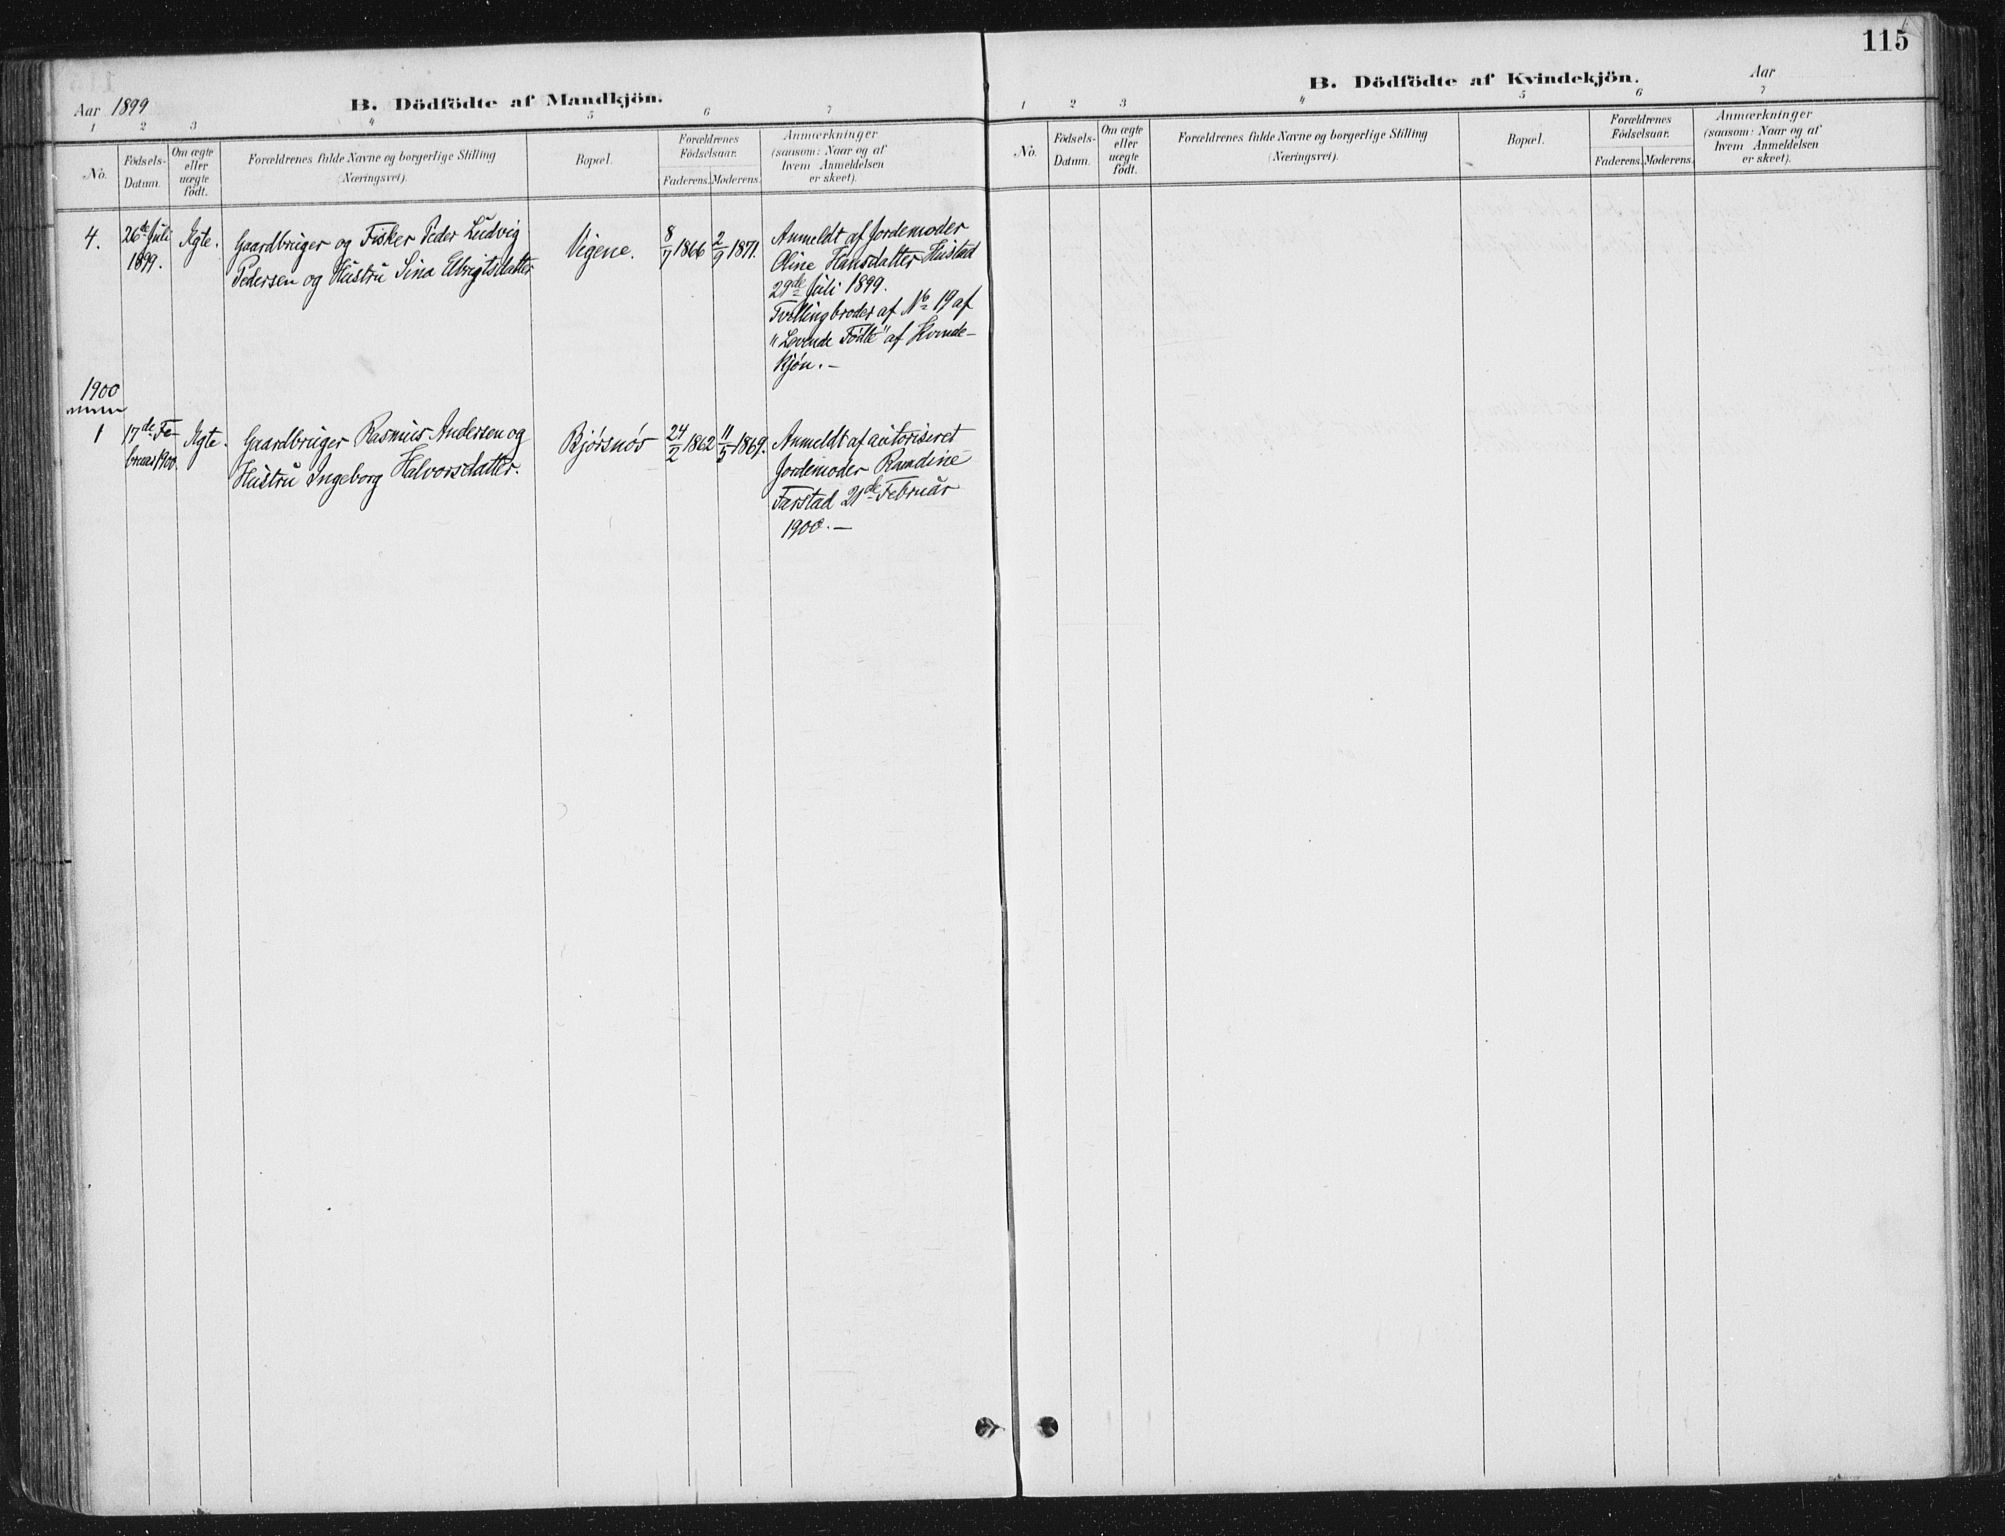 115
Aar 1899
B. Dödfödte af Mandkjön.
1 2 3 4 5 6 7
No.
Födsels-
Datum.
Om ægte
eller
uægte
födt.
Forældrenes fulde Navne og borgerlige Stilling
(Næringsvei).
Bopæl.
Forældrenes
Födselsaar.
Faderens. Moderens.
Anmærkninger
(saasom: Naar og af
hvem Anmeldelsen
er skeet).
4.
26de Juli
1899.
Ægte.
Gaardbruger og Fisker Peder Ludvig
Pedersen og Hustru Sina Elbrigtsdatter
Vigene.
8/7 1866
2/9 1871.
Anmeldt af Jordemoder
Oline Hansdatter Hustad
29de Juli 1899.
Tvillingbroder af No 19 af
"Levende Födte" af Kvinde-
kjøn. -
1900
1
17de Fe-
bruar 1900.
Ægte.
Gaardbruger Rasmus Andersen og
Hustru Ingeborg Halvorsdatter.
Bjørsnøs
24/2 1862
11/5 1869.
Anmeldt af autoriseret
Jordemoder Ramdine
Farstad 21de Februar
1900. -
B. Dödfödte af Kvindekjön.
Aar
1 2 3 4 5 6 7
No.
Födsels-
Datum.
Om ægte
eller
uægte
födt.
Forældrenes fulde Navne og borgerlige Stilling
(Næringsvei).
Bopæl.
Forældrenes
Födselsaar.
Faderens. Moderens.
Anmærkninger
(saasom: Naar og af
hvem Anmeldelsen
er skeet).